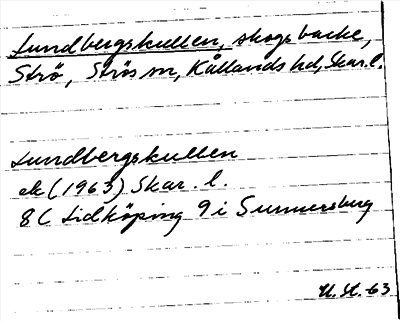 Lundbergskullen, skogsbacke,
Strö, Strös sn, Kållands hd, Skar.l.
Lundbergskullen
ek (1963) Skar. l.
8C Lidköping 9i Sunnersberg
U.St.-63